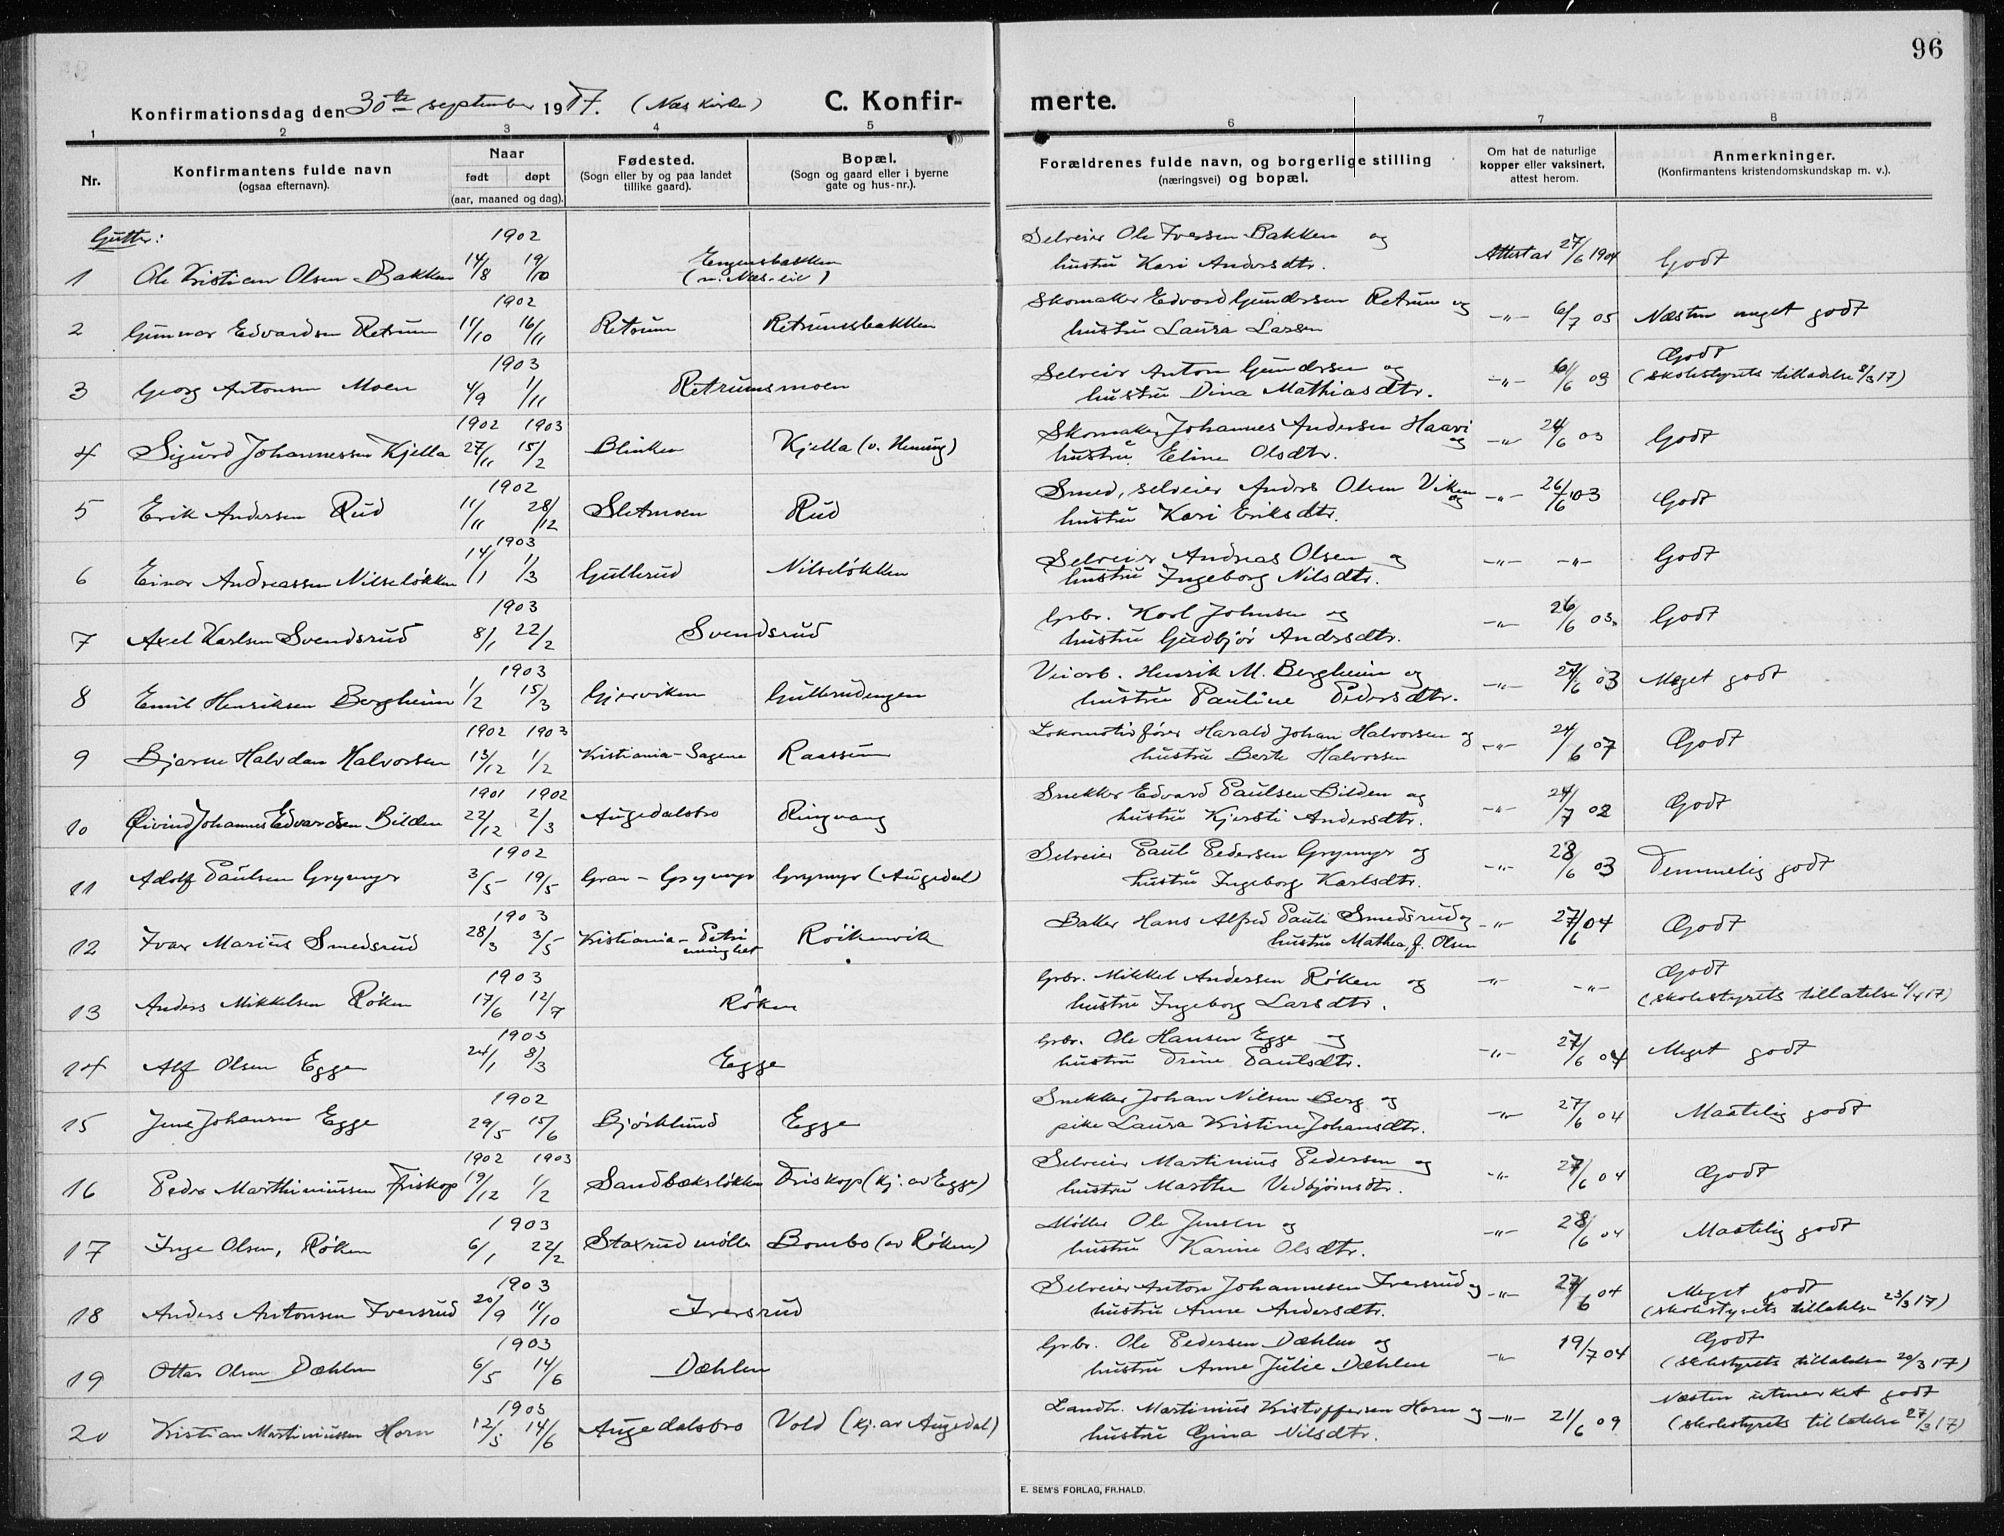 96
Konfirmationsdag den 30te september 1917. (Næs kirke) C. Konfir-merte.
1 2 3 4 5 6 7 8
Nr. Konfirmantens fulde navn (ogsaa efternavn). Naar født døpt (aar, maaned og dag). Fødested. (Sogn eller by og paa landet tillike gaard). Bopæl. (Sogn og gaard eller i byerne gate og hus-nr.). Forældrenes fulde navn, og borgerlige stilling (næringsvei) og bopæl. Om hat de naturlige kopper eller vaksinert, attest herom. Anmerkninger. (Konfirmantens kristendomskundskap m. v.).
Gutter:
1 Ole Kristian Olsen Bakken 1902 14/8 19/10 Engensbakken (u. Næs-eie) Selveier Ole Iversen Bakken og hustru Kari Andersdtr. Attest av 27/6 1904 Godt
2 Gunnar Edvardsen Retrum 1902 11/10 16/11 Retrum Retrumsbakken Skomaker Edvard Gundersen Retrum og hustru Laura Larsen -"- 6/7 05 Næsten meget godt
3 Georg Antonsen Moen 1903 4/9 1/11 Retrumsmoen Selveier Anton Gundersen og hustru Dina Mathiasdtr. -"- 6/6 09 Godt (skolestyrets tilladelse 8/3 17)
4 Sigurd Johannessen Kjella 1902 1903 27/11 15/2 Blinken Kjella (v. Hennug) Skomaker Johannes Andersen Haavi og hustru Eline Olsdtr. -"- 24/6 03 Godt
5 Erik Andersen Rud 1902 11/11 28/12 Sletmoen Rud Smed, selveier Anders Olsen Viken og hustru Kari Eriksdtr. -"- 26/6 03 Godt
6 Einar Andreassen Nilseløkken 1903 14/1 1/3 Gullerud Nilseløkken Selveier Andreas Olsen og hustru Ingeborg Nilsdtr. -"- -"- Godt
7 Axel Karlsen Svendsrud 1903 8/1 22/2 Svendsrud Grbr. Karl Johnsen og hustru Gudbjør Andersdtr. -"- 26/6 03. Godt
8 Emil Henriksen Bergheim 1903 1/2 15/3 Gjerviken Gullerudengen Veiarb. Henrik M. Bergheim og hustru Pauline Pedersdtr. -"- 27/6 03 Meget godt
9 Bjarne Halvdan Halvorsen 1902 1903 13/12 1/2 Kristiania-Sagene Raassum Lokomotivfører Harald Johan Halvorsen og hustru Berte Halvorsen -"- 24/6 07 Godt
10 Øivind Johannes Edvardsen Bilden 1901 1902 22/12 2/3 Augedalsbro Ringvang Snekker Edvard Paulsen Bilden og hustru Kjersti Andersdtr. -"- 24/7 02 Godt
11 Adolf Paulsen Grymyr 1902 3/5 19/5 Gran - Grymyr Grymyr (Augedal) Selveier Paul Pedersen Grymyr og hustru Ingeborg Karlsdtr. -"- 28/6 03 Temmelig godt
12 Ivar Marius Smedsrud 1903 28/3 3/5 Kristiania-Petri menighet Røikenvik Baker Hans Alfred Pauli Smedsrud og hustru Mathea, f. Olsen -"- 27/6 04 Godt
13 Anders Mikkelsen Røken 1903 17/6 12/7 Røken Grbr. Mikkel Andersen Røken og hustru Ingeborg Larsdtr. -"- -"- Godt (skolestyrets tillatelse 4/4 17)
14 Alf Olsen Egge 1903 24/1 8/3 Egge Grbr. Ole Hansen Egge og hustru Trine Paulsdtr. -"- 27/6 04 Meget godt
15 Jens Johansen Egge 1902 29/5 15/6 Bjørklund Egge Snekker Johan Nilsen Berg og pike Laura Kristine Johansdtr. -"- 27/6 04 Maatelig godt
16 Peder Marthiniussen Friskop 1902 1903 19/12 1/2 Sandbæksløkken Friskop (kj. av Egge) Selveier Martinius Pedersen og hustru Marthe Vedbjørnsdtr. -"- 27/6 04 Godt
17 Inge Olsen, Røken 1903 6/1 22/2 Staxrud mølle Bombo (av Røken) Møller Ole Jensen og hustru Karine Olsdtr. -"- 28/6 04 Maatelig godt
18 Anders Antonsen Iversrud 1903 20/9 11/10 Iversrud Selveier Anton Johannesen Iversrud og hustru Anne Andersdtr. -"- 27/6 04 Meget godt (skolestyrets tillatelse 23/3 17)
19 Ottar Olsen Dæhlen 1903 6/5 14/6 Dæhlen Grbr. Ole Pedersen Dæhlen og hustru Anne Julie Dæhlen -"- 19/7 04 Godt (skolestyrets tillatelse 20/3 17)
20 Kristian Martiniussen Horn 1903 12/5 14/6 Augedalsbro Vold (kj. av Augedal) Landh. Martinius Kristoffersen Horn og hustru Gina Nilsdtr. -"- 21/6 09 Næsten utmerket godt (skolestyrets tillatelse 27/3 17)
E. SEM'S FORLAG, FR.HALD.